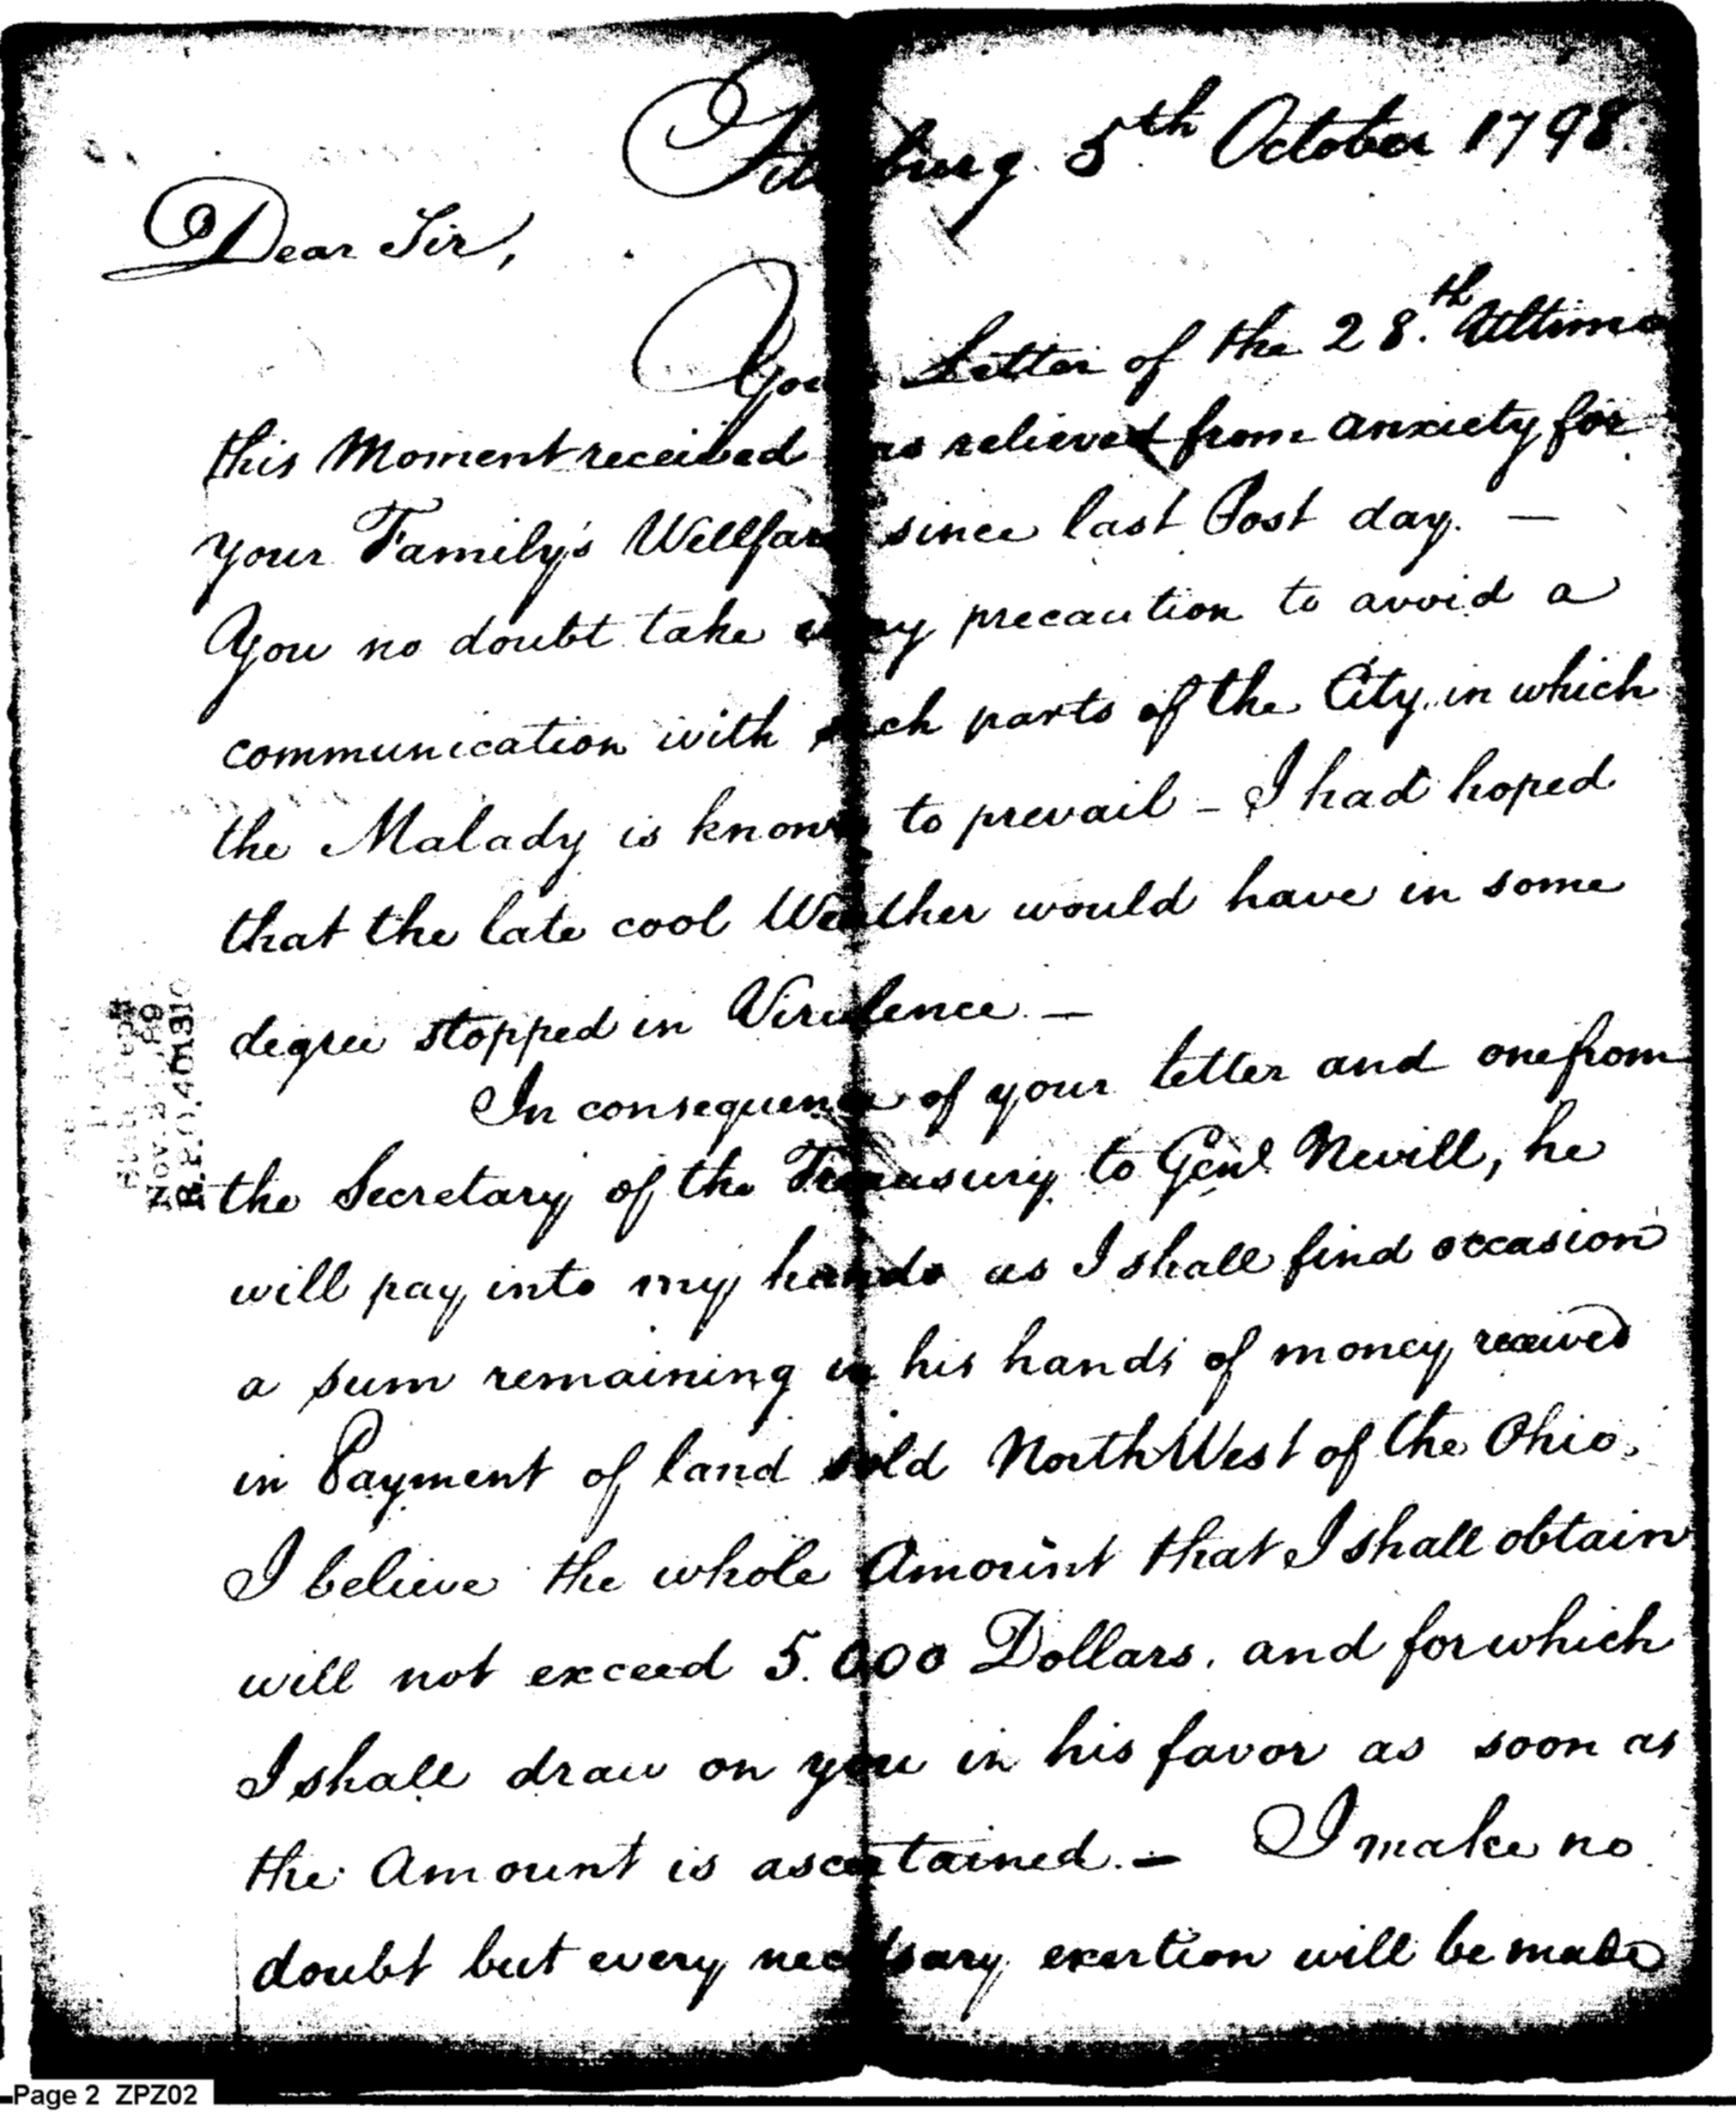 Pittsburg 5th October 1798.
Dear Sir,
Your Letter of the 28.th Ultimo
this Moment received has relieved from anxiety for
your Family's Wellfare since last Post day. —
You no doubt take every precaution to avoid a
communication with such parts of the City, in which
the Malady is known to prevail – I had hoped
that the late cool Weather would have in some
degree stopped in Virulence. —
In consequence of your letter and one from
the Secretary of the Treasury to Genl. Nevill, he
will pay into my hands as I shall find occasion
a sum remaining in his hands of money received
in Payment of land sold North West of the Ohio.
I believe the whole Amount that I shall obtain
will not exceed 5.000 Dollars, and for which
I shall draw on you in his favor as soon as
the Amount is ascertained. — I make no
doubt but every necessary exertion will be made
R.&P. 401310
Page 2 ZPZ02